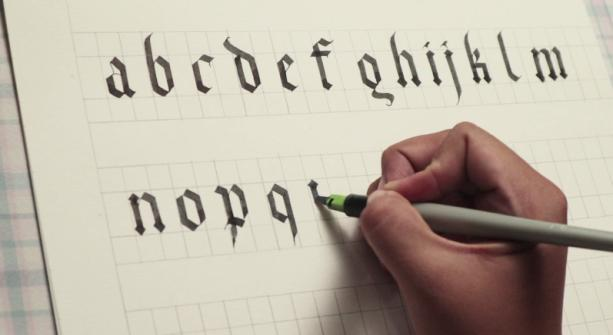 a b c d e f g h i j k l m
n o p q